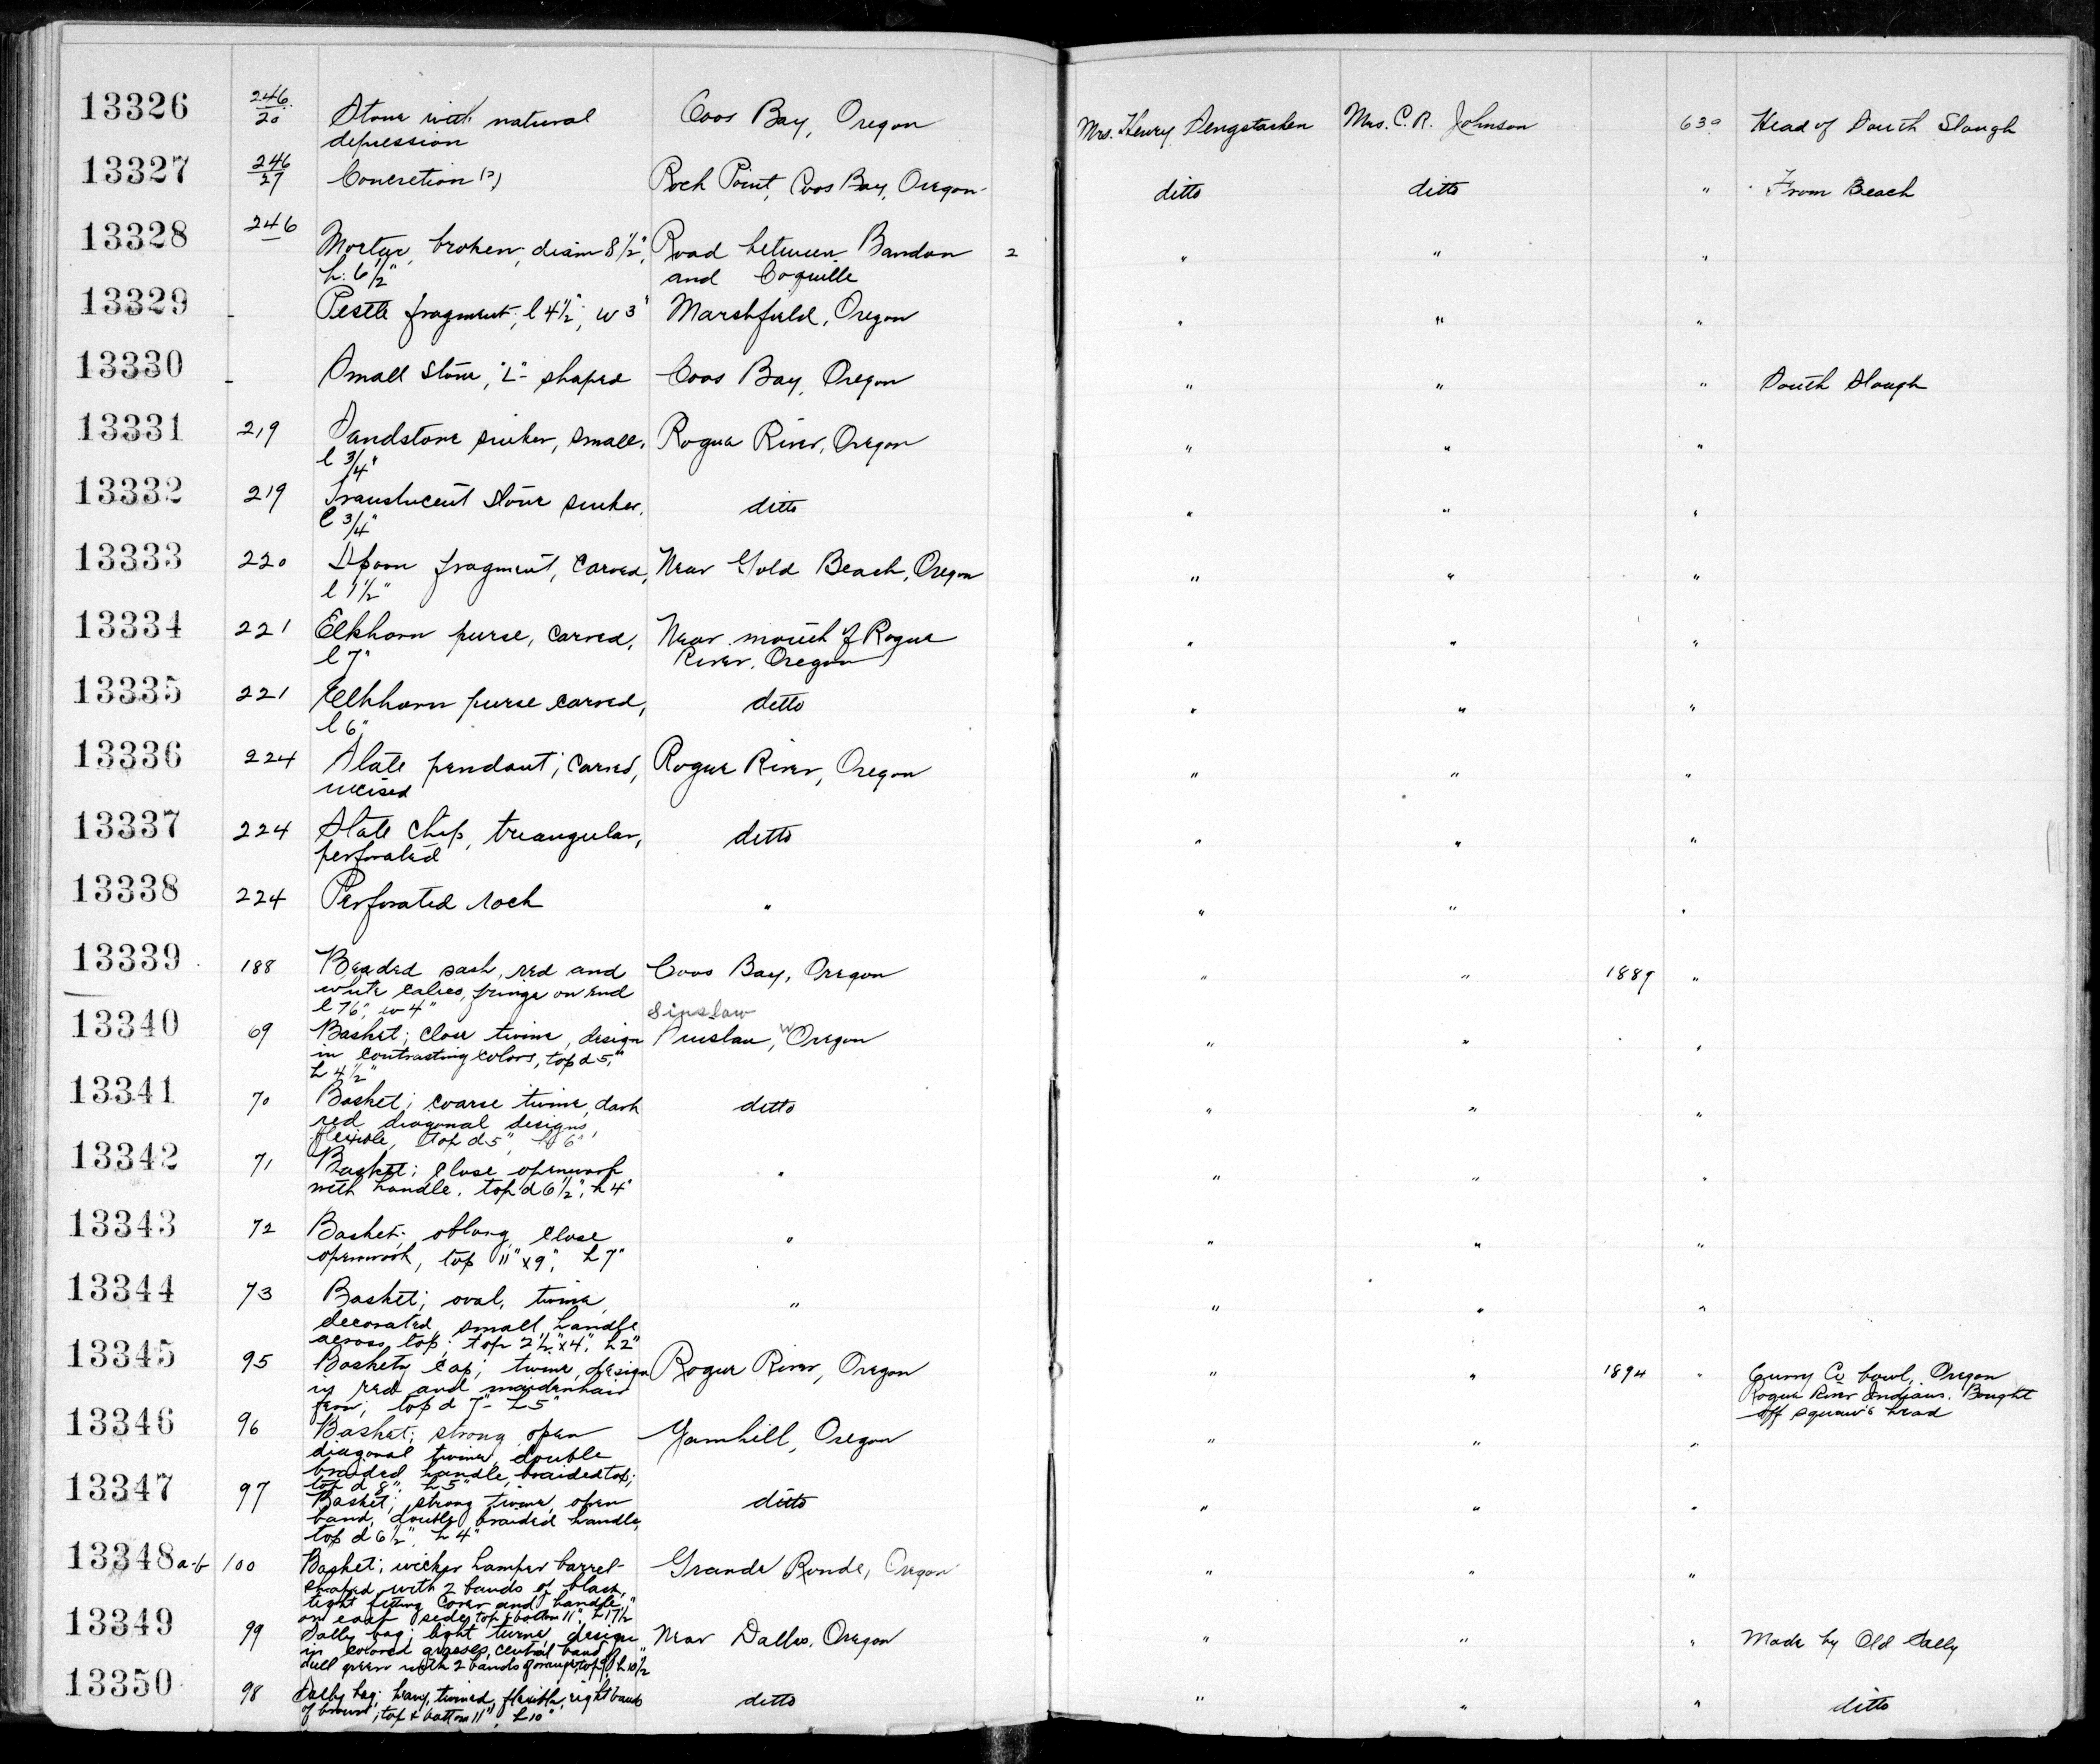 13326 246/20 Stone with natural Coos Bay, Oregon Mrs. Henry Sengstacken Mrs. C. R. Johnson 639 Head of South Slough
depression
13327 246/27 Concretion (?) Rock Point, Coos Bay, Oregon ditto ditto " From Beach
13328 246/— Mortar, broken, diam 8 1/2", Road between Bandon 2 " " "
h. 6 1/2" and Coquille
13329 - Pestle fragment; l 4 1/2", w 3" Marshfield, Oregon " " "
13330 - Small stone, "L"- shaped Coos Bay, Oregon " " " South Slough
13331 219 Sandstone sinker, small, Rogue River, Oregon " " "
l 3/4"
13332 219 Translucent stone sinker, ditto " " "
l 3/4"
13333 220 Spoon fragment, carved, Near Gold Beach, Oregon " " "
l 1 1/2"
13334 221 Elkhorn purse, carved, Near mouth of Rogue " " "
l 7" River, Oregon
13335 221 Elkhorn purse carved, ditto " " "
l 6"
13336 224 Slate pendant; carved, Rogue River, Oregon " " "
incised
13337 224 Slate chip, triangular, ditto " " "
perforated
13338 224 Perforated rock " " " "
13339 188 Beaded sash, red and Coos Bay, Oregon " " 1889 "
white calico, fringe on end
l 76", w 4" Sinslaw
13340 69 Basket; close twine, design Siuslaw, Oregon " " "
in contrasting colors, top d 5",
h 4 1/2"
13341 70 Basket; coarse twine, dark ditto " " "
red diagonal designs,
flexible, top d 5", h 6"
13342 71 Basket; close openwork " " " "
with handle. top d 6 1/2", h 4"
13343 72 Basket; oblong, close " " " "
openwork, top 11" x 9", h 7"
13344 73 Basket; oval, twine, " " " "
decorated, small handle
across top; top 2 1/2" x 4", h 2"
13345 95 Baskety cap; twine, design Rogue River, Oregon " " 1894 " Curry Co bowl, Oregon
in red and maidenhair Rogue River Indians. Bought
fern; top d 7" h 5" off squaw's head
13346 96 Basket; strong open Yamhill, Oregon " " "
diagonal twine, double
braided handle, braided top;
top d 8", h 5"
13347 97 Basket; strong twine, open ditto " " "
band, double braided handle,
top d 6 1/2", h 4"
13348 a-b 100 Basket; wicker hamper barrel- Grande Ronde, Oregon " " "
shaped with 2 bands of black,
tight fitting cover and handle
on each side, top & bottom 11", h 17 1/2"
13349 99 Sally bag; light twine, design Near Dalles, Oregon " " " Made by Old Sally
in colored grasses, central band
dull green with 2 bands of orange, top h 10 1/2
13350 98 Sally bag; heavy, twined, flexible, eight bands ditto " " " ditto
of brown; top & bottom 11", h 10"